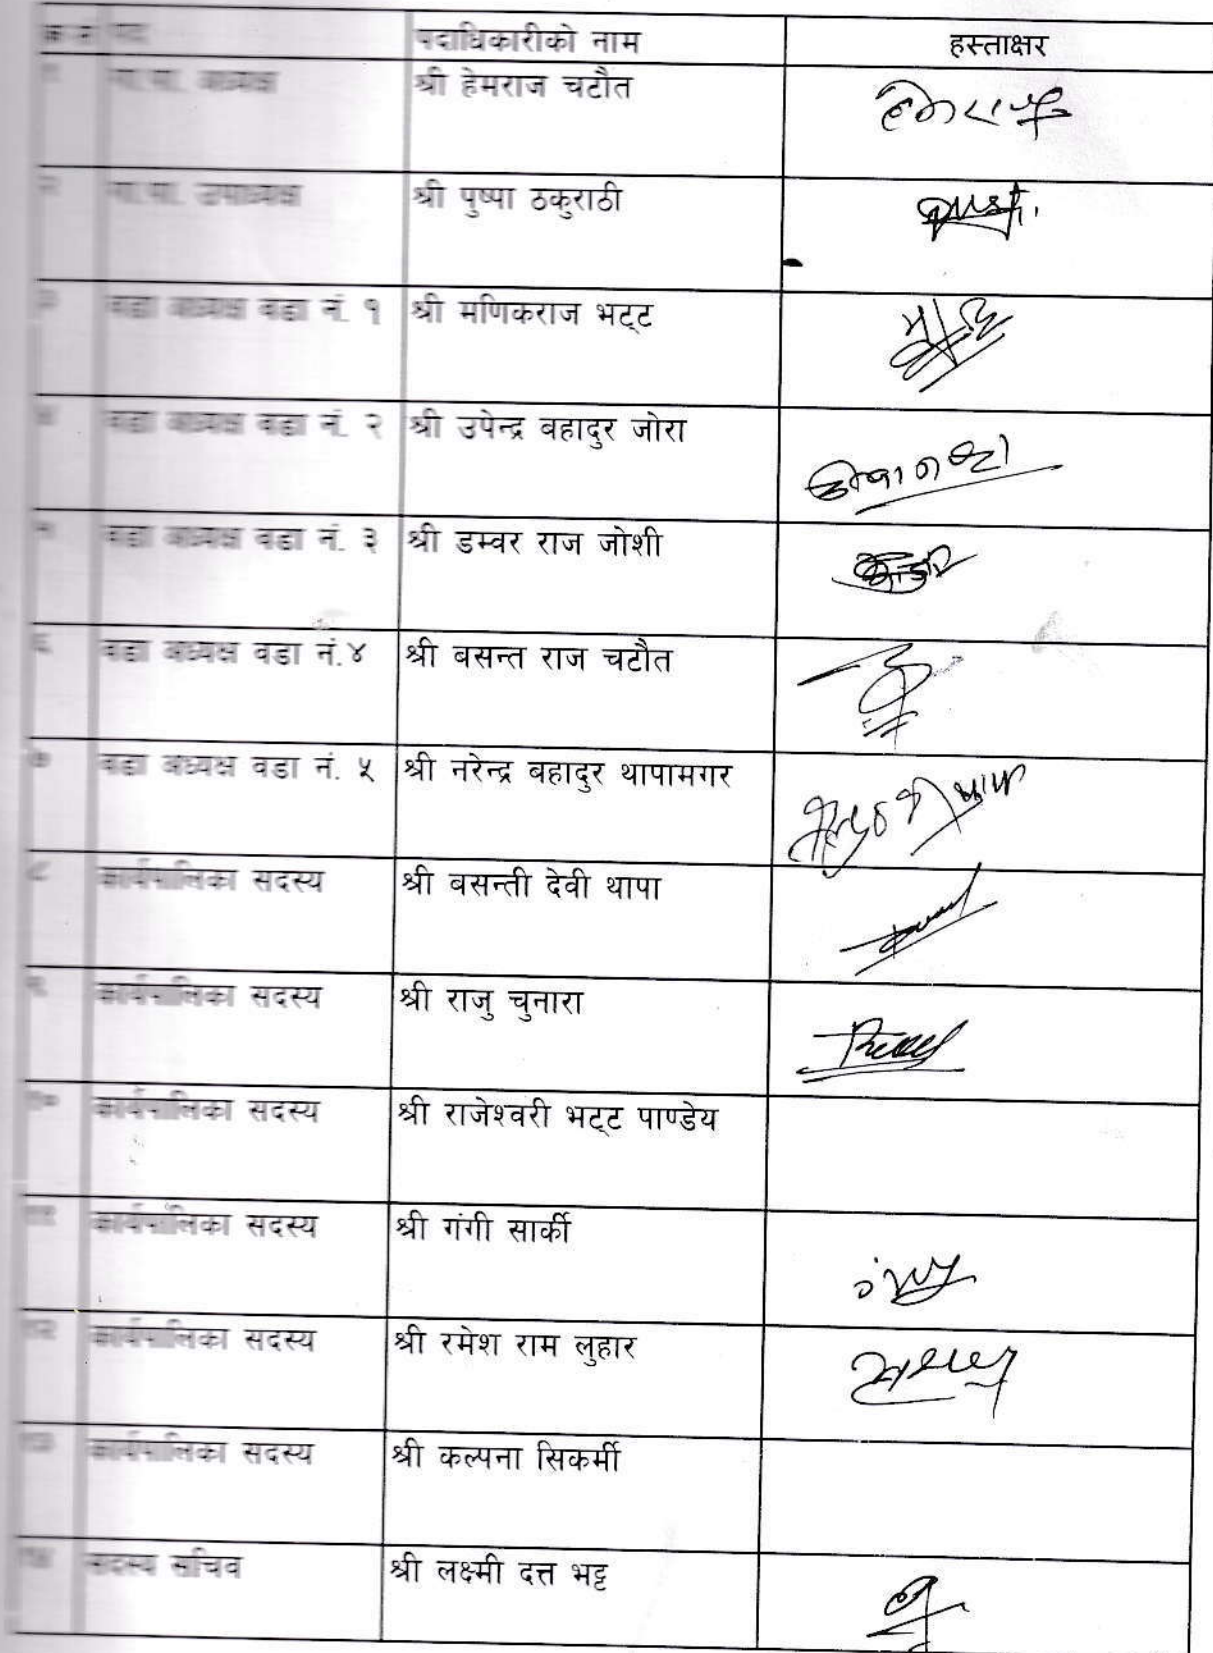 क्र स पद पदाधिकारीको नाम हस्ताक्षर
१ गा.पा. अध्यक्ष श्री हेमराज चटौत हेमराज
२ गा.पा. उपाध्यक्ष श्री पुष्पा ठकुराठी
३ वडा अध्यक्ष वडा नं. १ श्री मणिकराज भट्ट
४ वडा अध्यक्ष वडा नं. २ श्री उपेन्द्र बहादुर जोरा
५ वडा अध्यक्ष वडा नं. ३ श्री डम्वर राज जोशी
६ वडा अध्यक्ष वडा नं.४ श्री बसन्त राज चटौत
७ वडा अध्यक्ष वडा नं. ५ श्री नरेन्द्र बहादुर थापामगर
८ कार्यपालिका सदस्य श्री बसन्ती देवी थापा
९ कार्यपालिका सदस्य श्री राजु चुनारा
१० कार्यपालिका सदस्य श्री राजेश्वरी भट्ट पाण्डेय
११ कार्यपालिका सदस्य श्री गंगी सार्की
१२ कार्यपालिका सदस्य श्री रमेश राम लुहार
१३ कार्यपालिका सदस्य श्री कल्पना सिकर्मी
१४ सदस्य सचिव श्री लक्ष्मी दत्त भट्ट